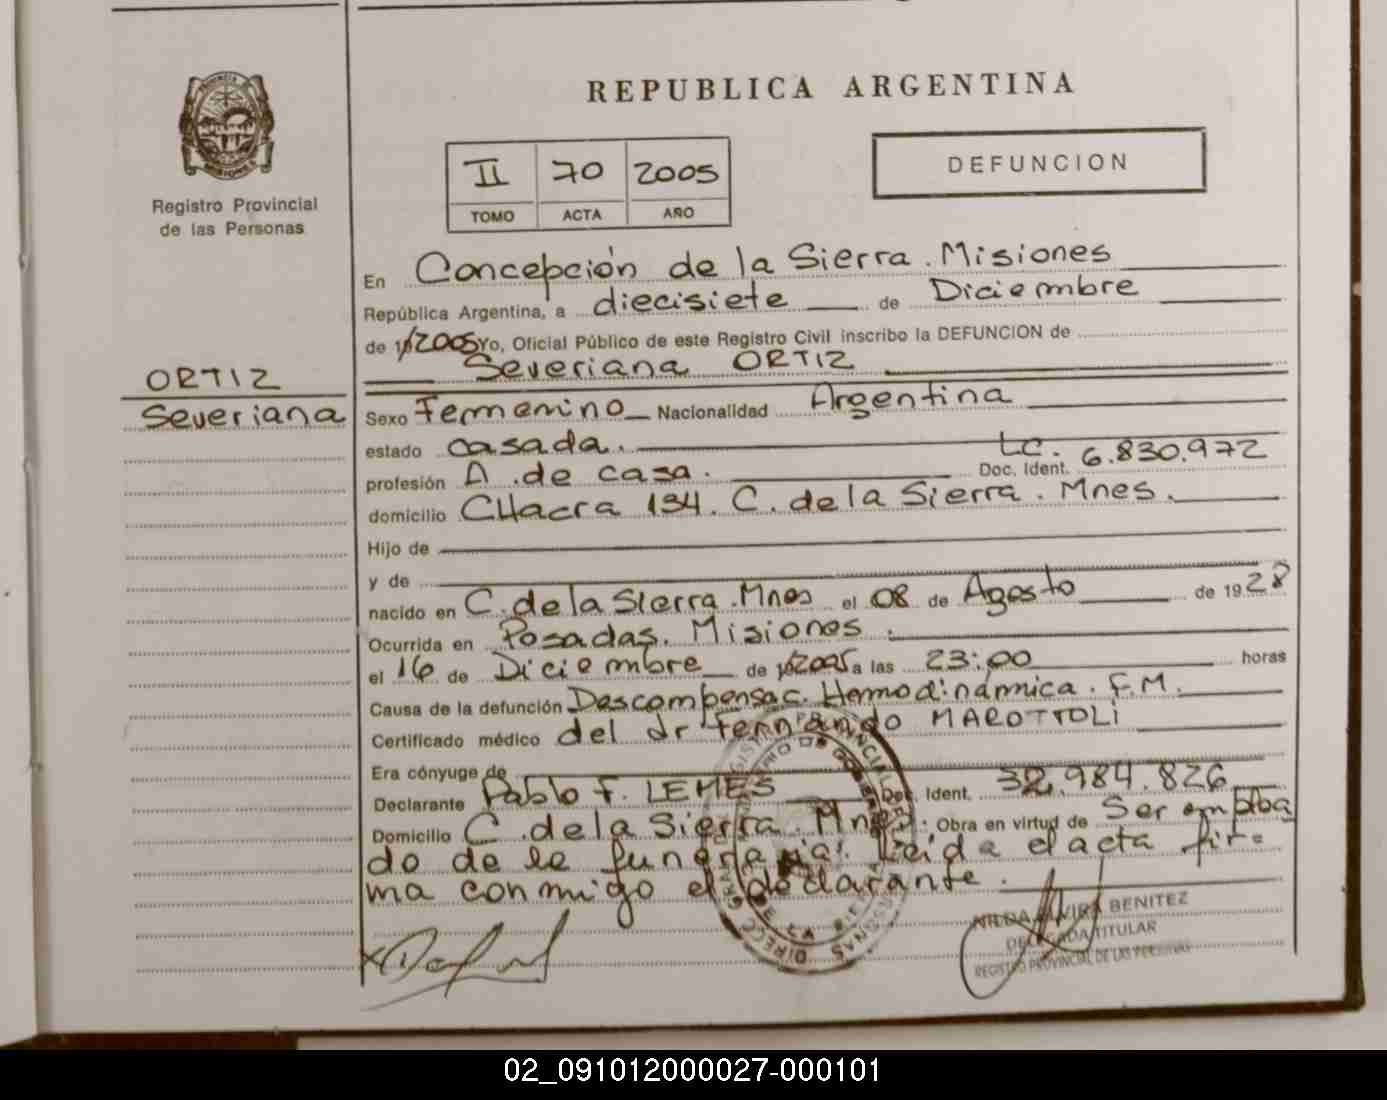 REPUBLICA ARGENTINA
II 70 2005
TOMO ACTA AÑO
DEFUNCION
Registro Provincial
de las Personas
ORTIZ
Severiana
En Concepción de la Sierra. Misiones
República Argentina, a diecisiete de Diciembre
de 2005 Yo, Oficial Público de este Registro Civil inscribo la DEFUNCION de
Severiana ORTIZ
Sexo Femenino Nacionalidad Argentina
estado casada.
profesión A. de casa. Doc. Ident. LC. 6.830.972
domicilio CHacra 134. C. de la Sierra. Mnes.
Hijo de
y de
nacido en C. de la Sierra. Mnes el 08 de Agosto de 1928
Ocurrida en Posadas. Misiones.
el 16 de Diciembre de 2005 a las 23:00 horas
Causa de la defunción Descompensac. Hemodinámica. F.M.
Certificado médico del dr Fernando MAROTTOLI
Era cónyuge de
Declarante Pablo F. LEMES Doc. Ident. 32.984.826
Domicilio C. de la Sierra. Mnes. Obra en virtud de Ser emplea
do de la funeraria. Leida el acta fir=
ma conmigo el declarante.
NILDA ELVIRA BENITEZ
DELEGADA TITULAR
REGISTRO PROVINCIAL DE LAS PERSONAS
02_091012000027-000101